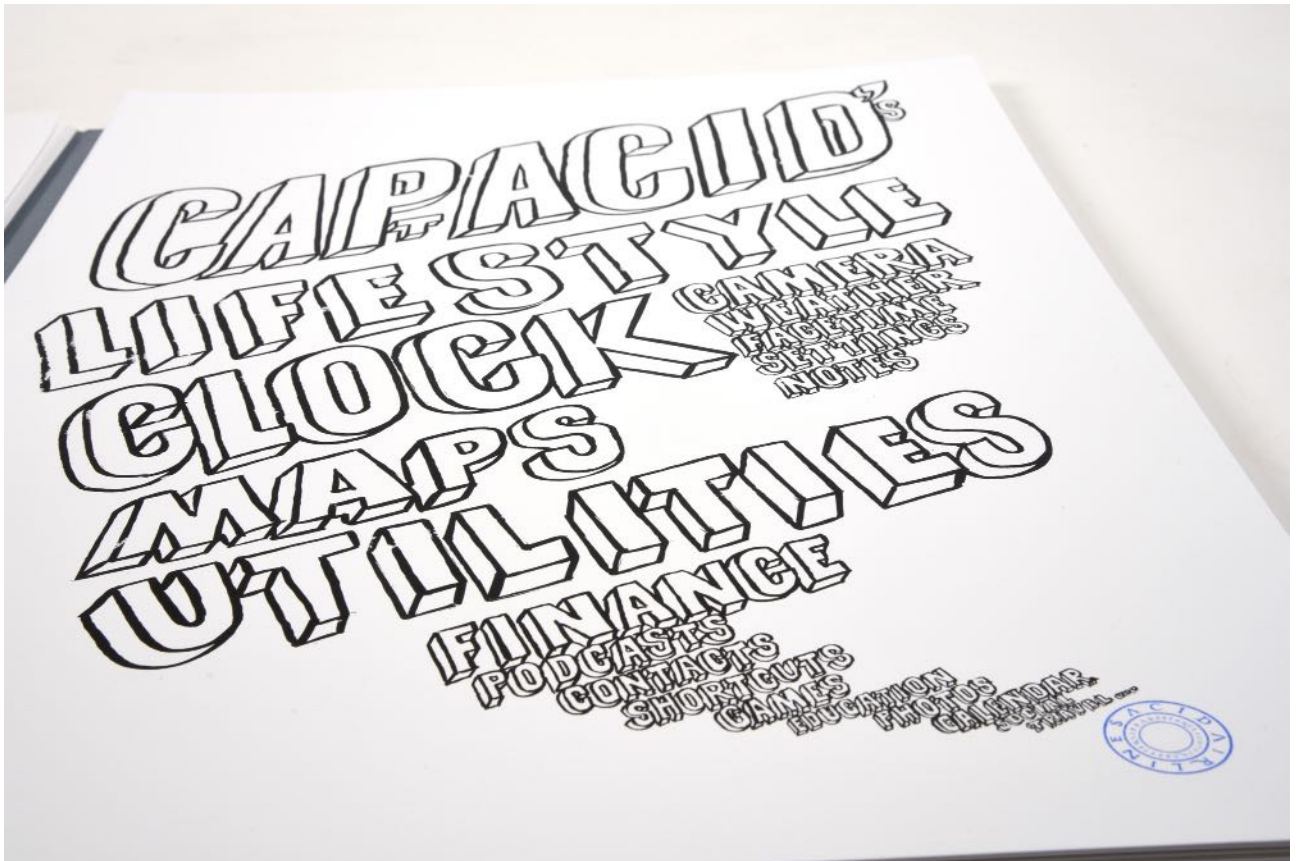 CAPACID's
IT
LIFESTYLE
CLOCK
CAMERA
WEATHER
FACETIME
SETTINGS
NOTES
MAPS
UTILITIES
FINANCE
PODCASTS
CONTACTS
SHORTCUTS
GAMES
EDUCATION
PHOTOS
CALENDAR,
SOCIAL
TRAVEL ...
ACID AIRLINES